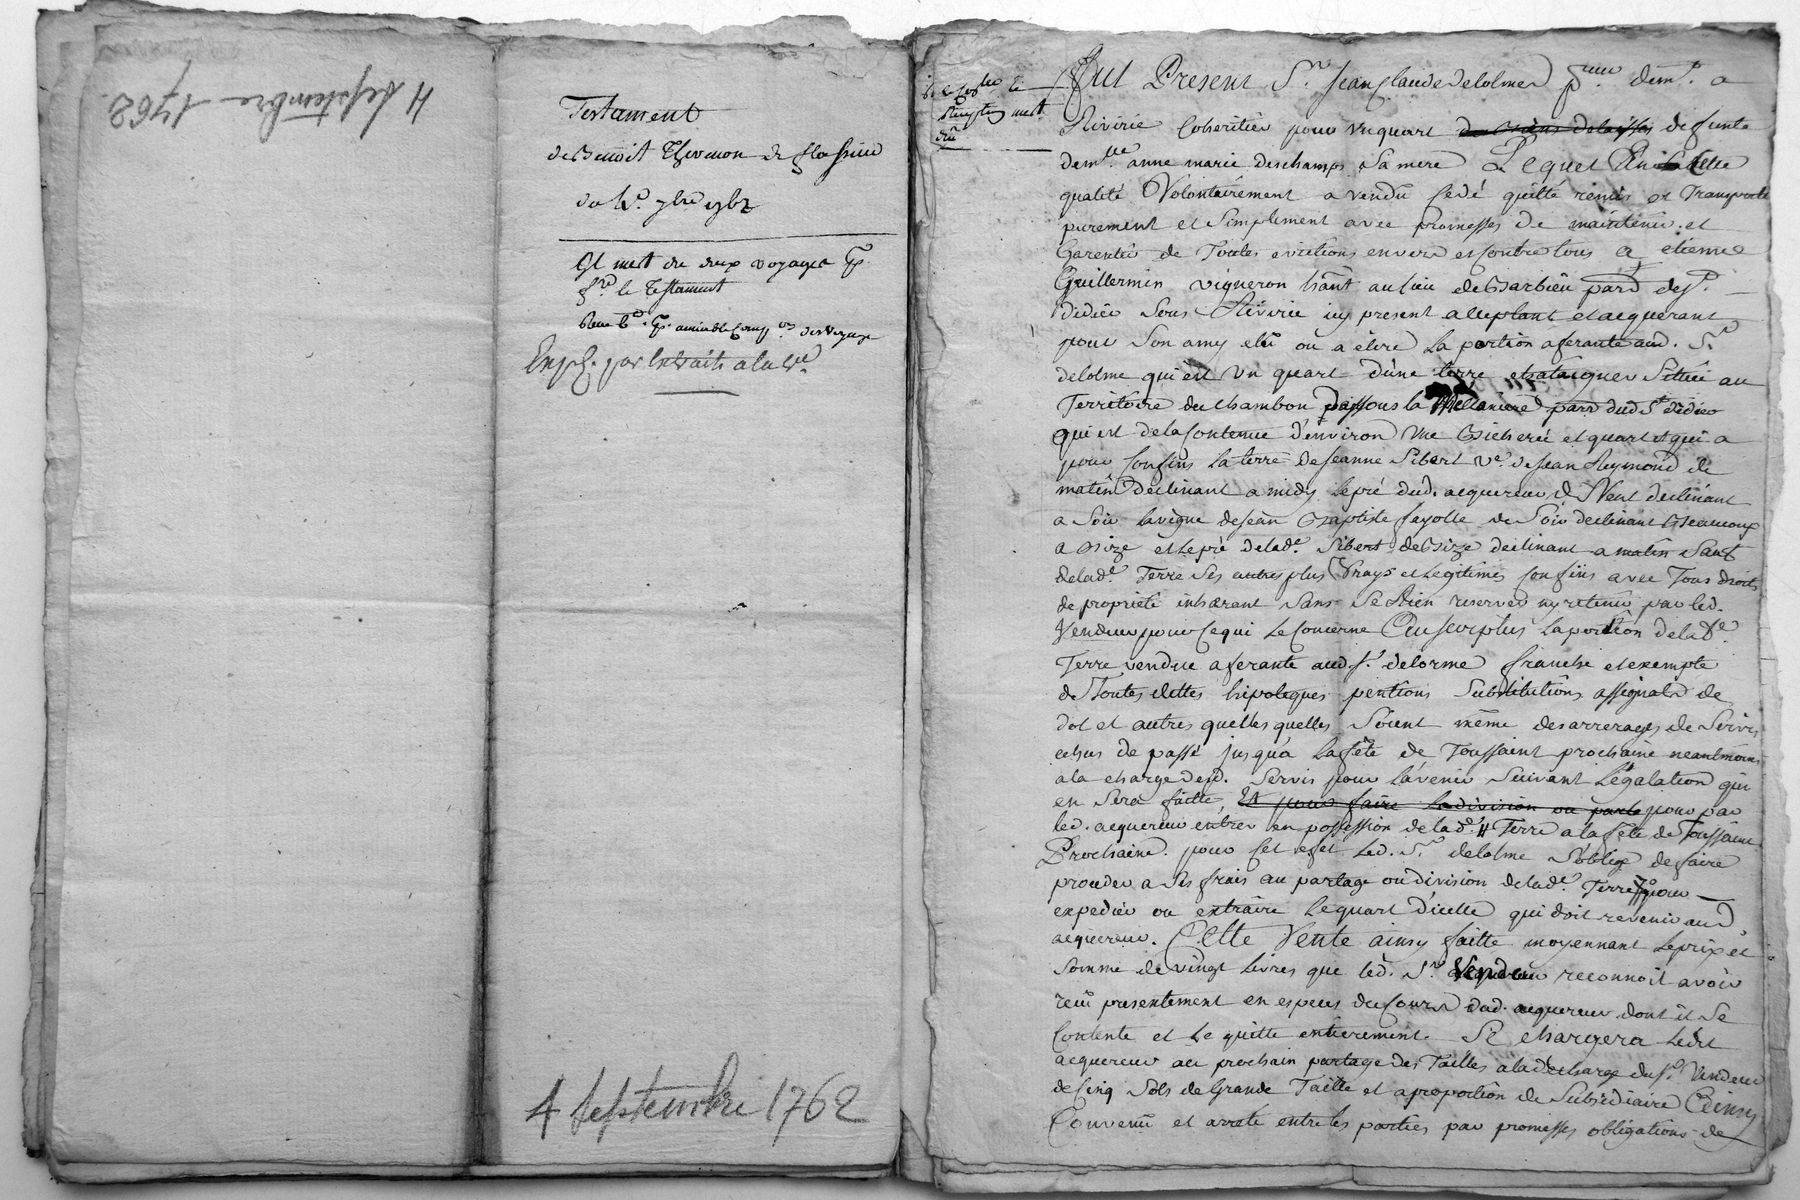 4 Septembre 1762.
Testament
de Benoit Thevenon de
du 4e. 7bre 1762
Il met de deux voyages
le Testament
par Extrait a la
4 Septembre 1762
Fut Present Sr. Jean Claude delolme demt. a
Rivirie Coheritier pour un quart de defunte
demlle anne marie deschamps sa mere Lequel En Cette
qualité Volontairement a vendu cedé quitté remis et Transporté
purement et Simplement avec promesses de maintenir et
Garentir de Toutes evictions envers et contre tous a etienne
Guillermin vigneron hant au lieu de parr de St.
didier Sous Rivirie icy present acceptant et acquerant
pour Son amy elû ou a élire La portion aferante aud. Sr.
delolme qui est un quart d'une terre et chataigner Scituée au
Territoire du Chambon dessous la parr dud St. didier
qui est de la Contenue d'environ Une Bicherée et quart et qui a
pour Confins la terre de Jeanne Sibert ve. de Jean Reymond de
matin declinant a midy le pré dud. acquereur de Vent declinant
a Soir la vigne de Jean Baptiste fayolle de Soir declinant Beaucoup
a Bize et le pré de lade. Sibert de Bize declinant a matin Sauf
de lade. Terre Ses autres plus Vrays et Legitimes Confins avec Tous droits
de proprieté inherant Sans Se Rien reserver ny retenir par led.
Vendeur pour ce qui Le Concerne Au Surplus la portion de la de.
Terre vendue aferante aud Sr. delorme franche et exempte
de Toutes dettes hipoteques pentions Substitutions assignats de
dot et autres quelles quelles Soient même des arrerages de Servis
echus de passé jusqu'a la fête de Toussaint prochaine neantmoins
a la charge desd. Servis pour L'avenir Suivant L'egalation qui
en Sera faitte, Et pour faire la division ou parta pour par
led. acquereur entrer en possession de lade. # Terre a la fête de Toussaint
Prochaine. pour Cet efet Led. Sr. delolme S'oblige de faire
proceder a Ses frais au partage ou division de lade. Terre pour
expedier ou extraire Le quart d'icelle qui doit revenir aud
acquereur. Cette Vente ainsy faitte moyennant Le prix et
Somme de vingt Livres que led. Sr. Vendeur reconnoit avoir
reçû presentement en especes du Cours dud. acquereur dont il Se
Contente et Le quitte entierement. Se chargera Ledit
acquereur au prochain partage des Tailles a la decharge du Sr. Vendeur
de Cinq Sols de Grande Taille et a proportion de Subsidiaire Ainsy
Convenû et arreté entre les parties par promesses obligations de